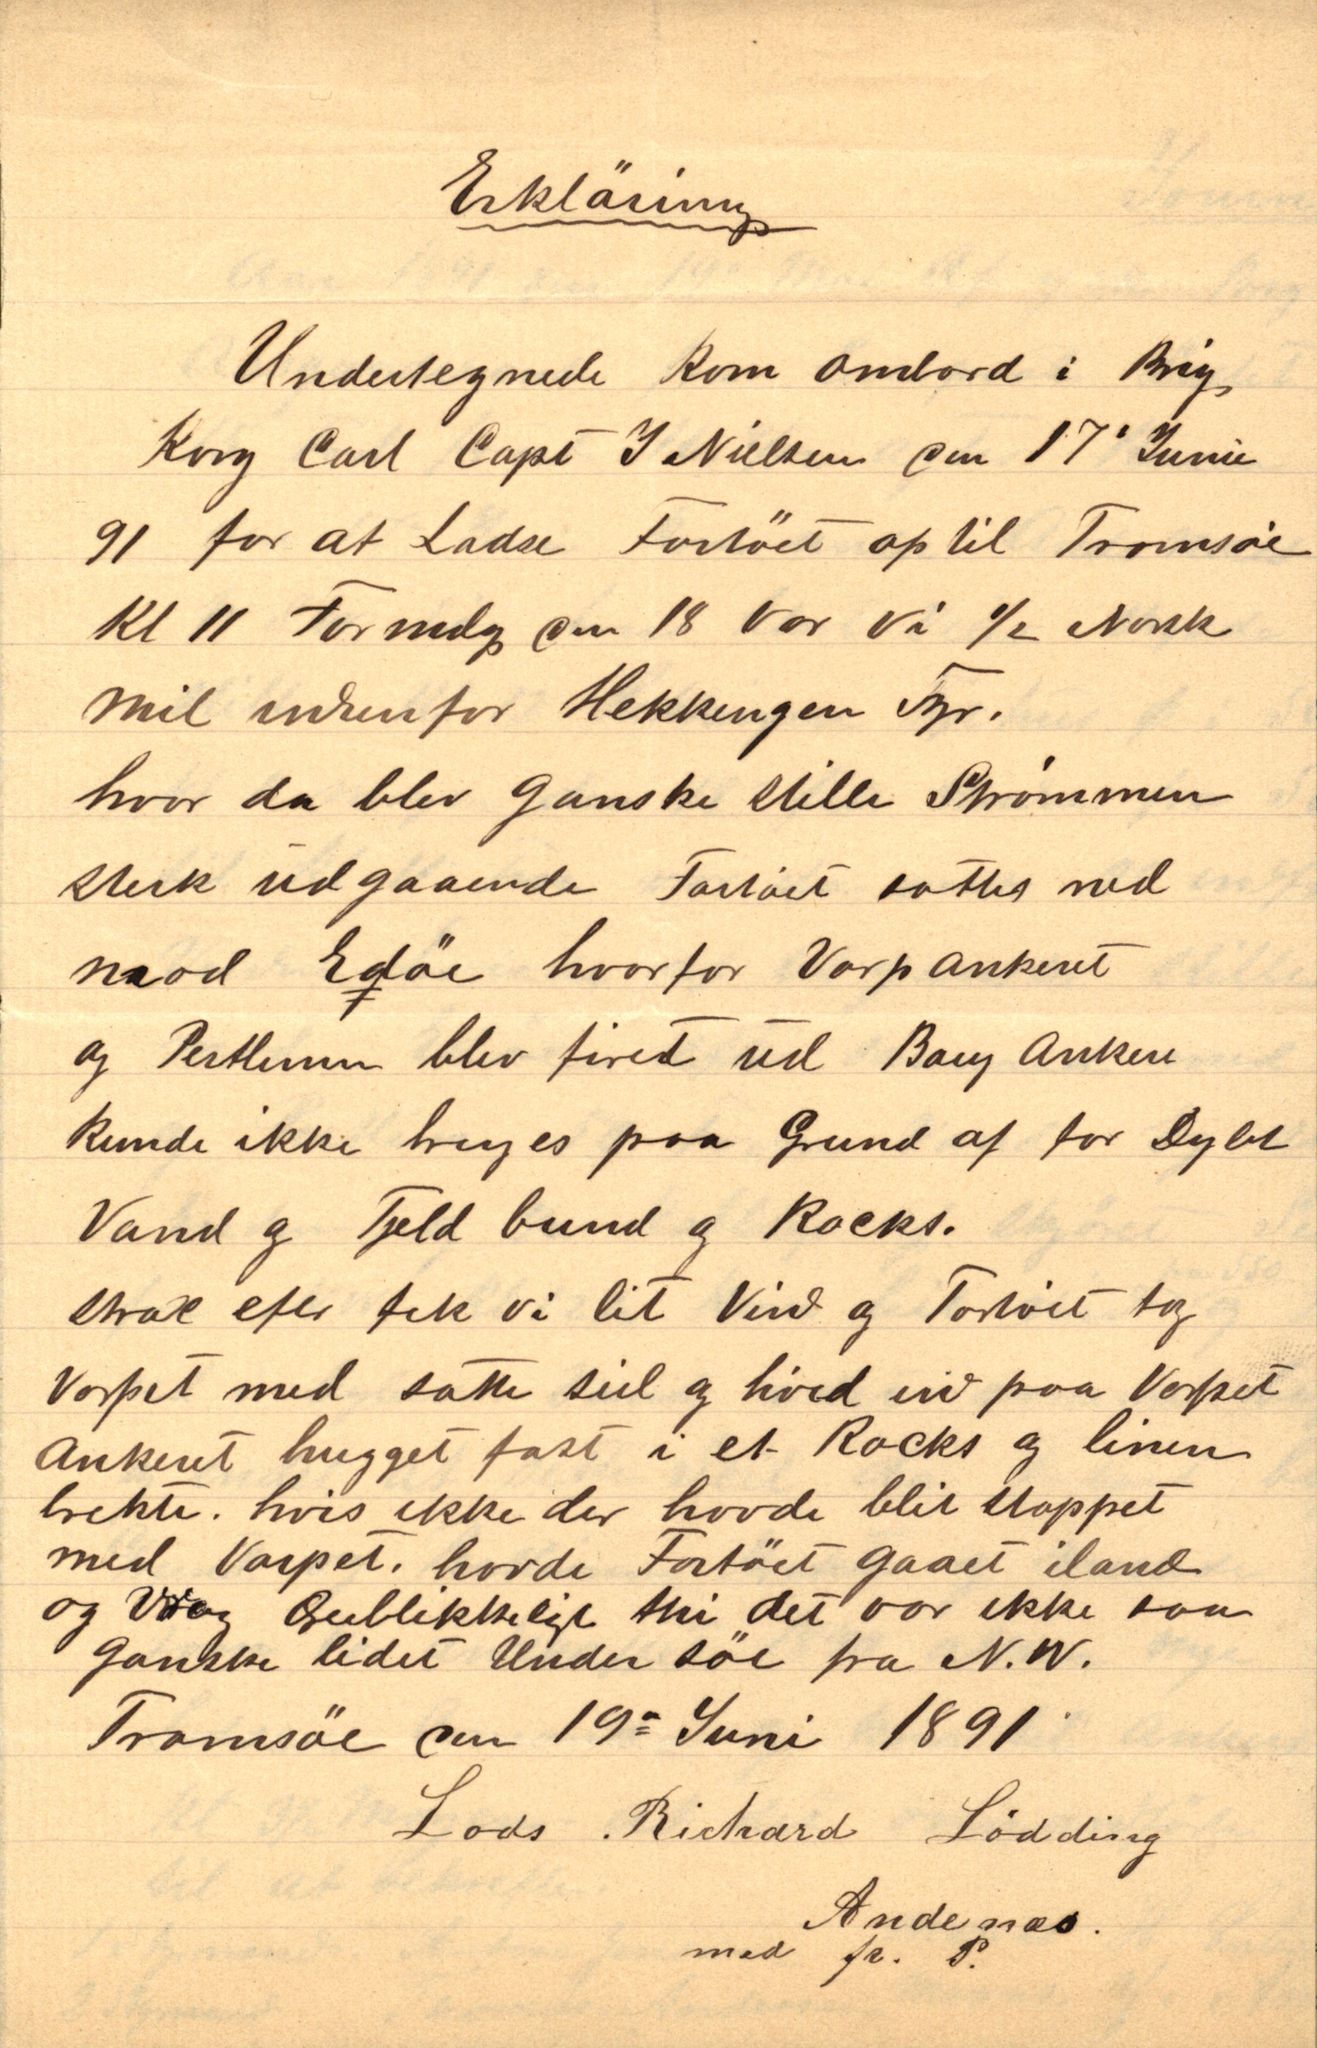 Erkläring
Undertegnede kom ombord i Brig
Kong Carl Capt I Nielsen den 17' Junie
91 for at Lodse Fortöiet op til Tromsöe
Kl 11 Formdg den 18 Var Vi 1/2 Norsk
Mil udenfor Hekkengen Fyr.
hvor da blev Ganske Stille Strømmen
Sterk udgaaende Fartöiet sattes ned
mod Edöe hvorfor Varp ankeret
og Pertlinen blev firet ud Boug Ankere
Kunde ikke bruges paa Grund af for Dybt
Vand og Fjeld bund og Rocks.
Strax efter fek vi lit Vind og Fortöiet tog
Varpet med satte Seil og hived ind paa Varpet
Ankeret hugget fast i et Rocks og linen
brekte. hvis ikke der havde blit Stoppet
med Varpet. havde Fortöiet Gaaet iland
og Vrag Öieblikkeligt thi det var ikke saa
Ganske lidet Under söe fra N.W.
Tromsöe den 19= Juni 1891
Lods Richard Lödding
Andenæs.
med fr. P.